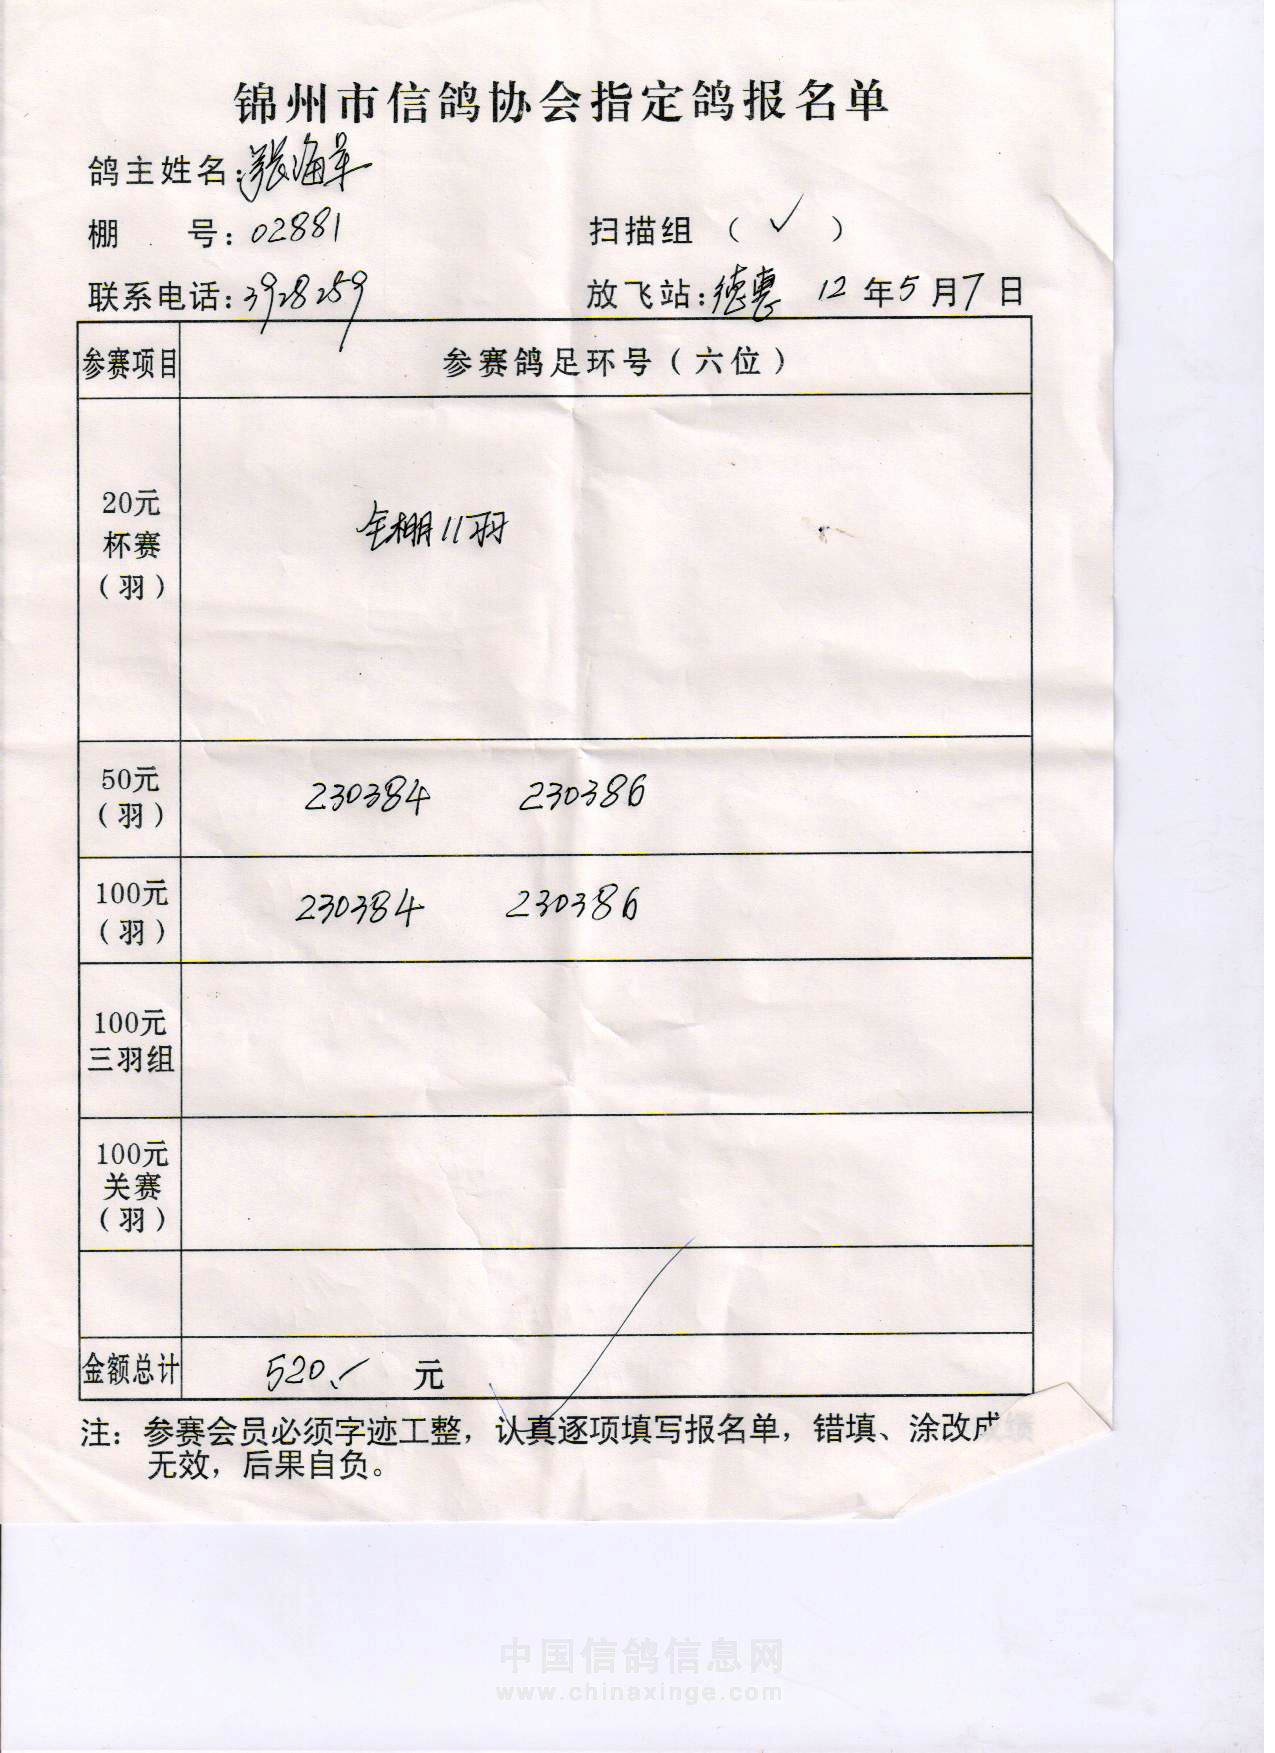 锦州市信鸽协会指定鸽报名单
鸽主姓名:张海军
棚 号:02881 扫描组 ( ✓ )
联系电话:3928259 放飞站:德惠 12年5月7日
参赛项目 参赛鸽足环号(六位)
20元
杯赛
(羽)
全棚11羽
50元
(羽)
230384 230386
100元
(羽)
230384 230386
100元
三羽组
100元
关赛
(羽)
金额总计 520.- 元
注:参赛会员必须字迹工整,认真逐项填写报名单,错填、涂改
无效,后果自负。
中国信鸽信息网
www.chinaxinge.com